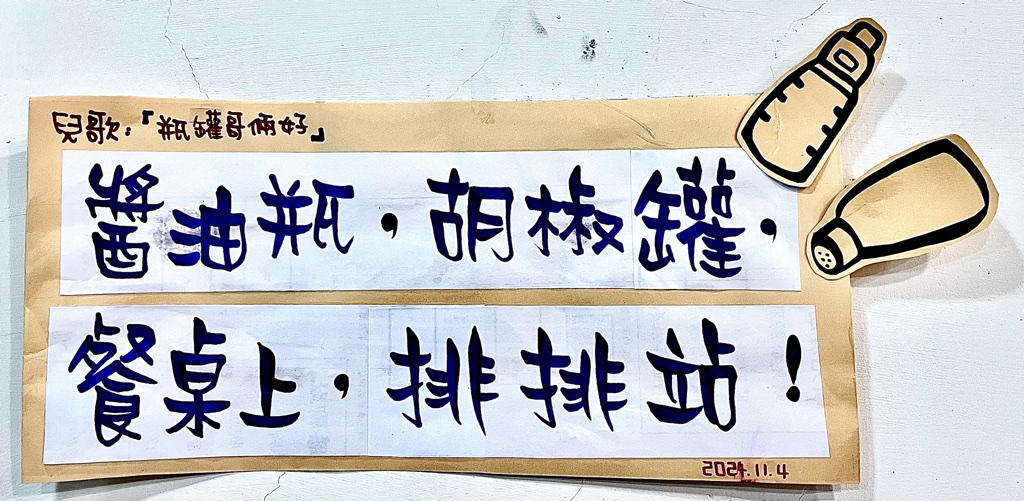 兒歌：「瓶罐哥倆好」
醬油瓶，胡椒罐，
餐桌上，排排站！
2024.11.4